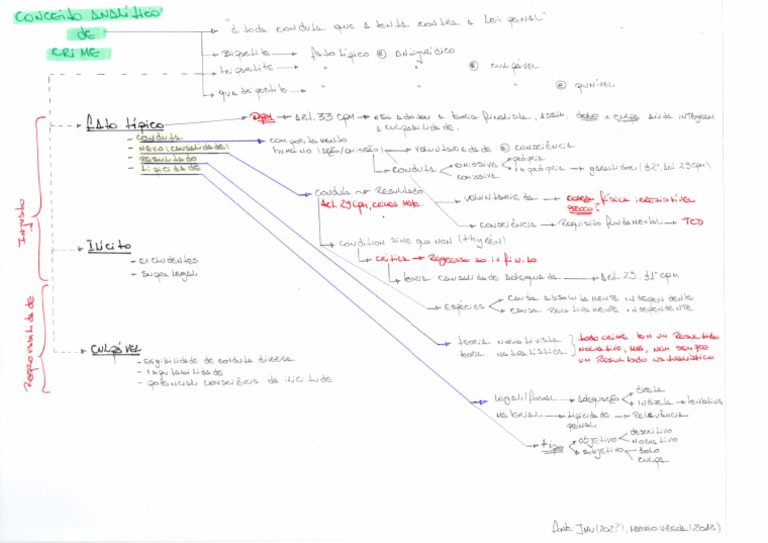 CONCEITO ANALÍTICO
DE
CRIME
"é toda conduta que atenta contra a lei penal"
Bipartite fato típico ⊕ antijurídico
tripartite " " ⊕ culpável
quadripartite " " " ⊕ punível
Fato típico
DPM Art. 33 cpm não adotou a teoria finalista, assim, dolo e culpa ainda integram
a culpabilidade.
- conduta
- nexo (causalidade)
- resultado
- tipicidade
comportamento
humano (ação/omissão)
voluntariedade ⊕ consciência
conduta
omissiva
comissiva
própria
imprópria garantidor (§2º, Art 29 cpm)
conduta Resultado
Art 29 cpm, crimes mat.
voluntariedade coação física irresistível
consciência Requisito fundamental TCD
condition sine qua non (thyrén)
crítica Regresso ao infinito
teoria causalidade adequada Art 29. §1º cpm
Injusto
Ilícito
- excludentes
- supra legal
Espécies
causa absolutamente independente
causa relativamente independente
teoria normativista
teoria naturalística
todo crime tem um Resultado
normativo, mas, nem sempre
um Resultado naturalístico
Responsabilidade
culpável
- exigibilidade de conduta diversa
- imputabilidade
- potencial consciência da ilicitude
legal/formal adequação
direta
indireta tentativa
material tipicidade Relevância
penal
tipo
objetivo
descritivo
normativo
subjetivo
dolo
culpa